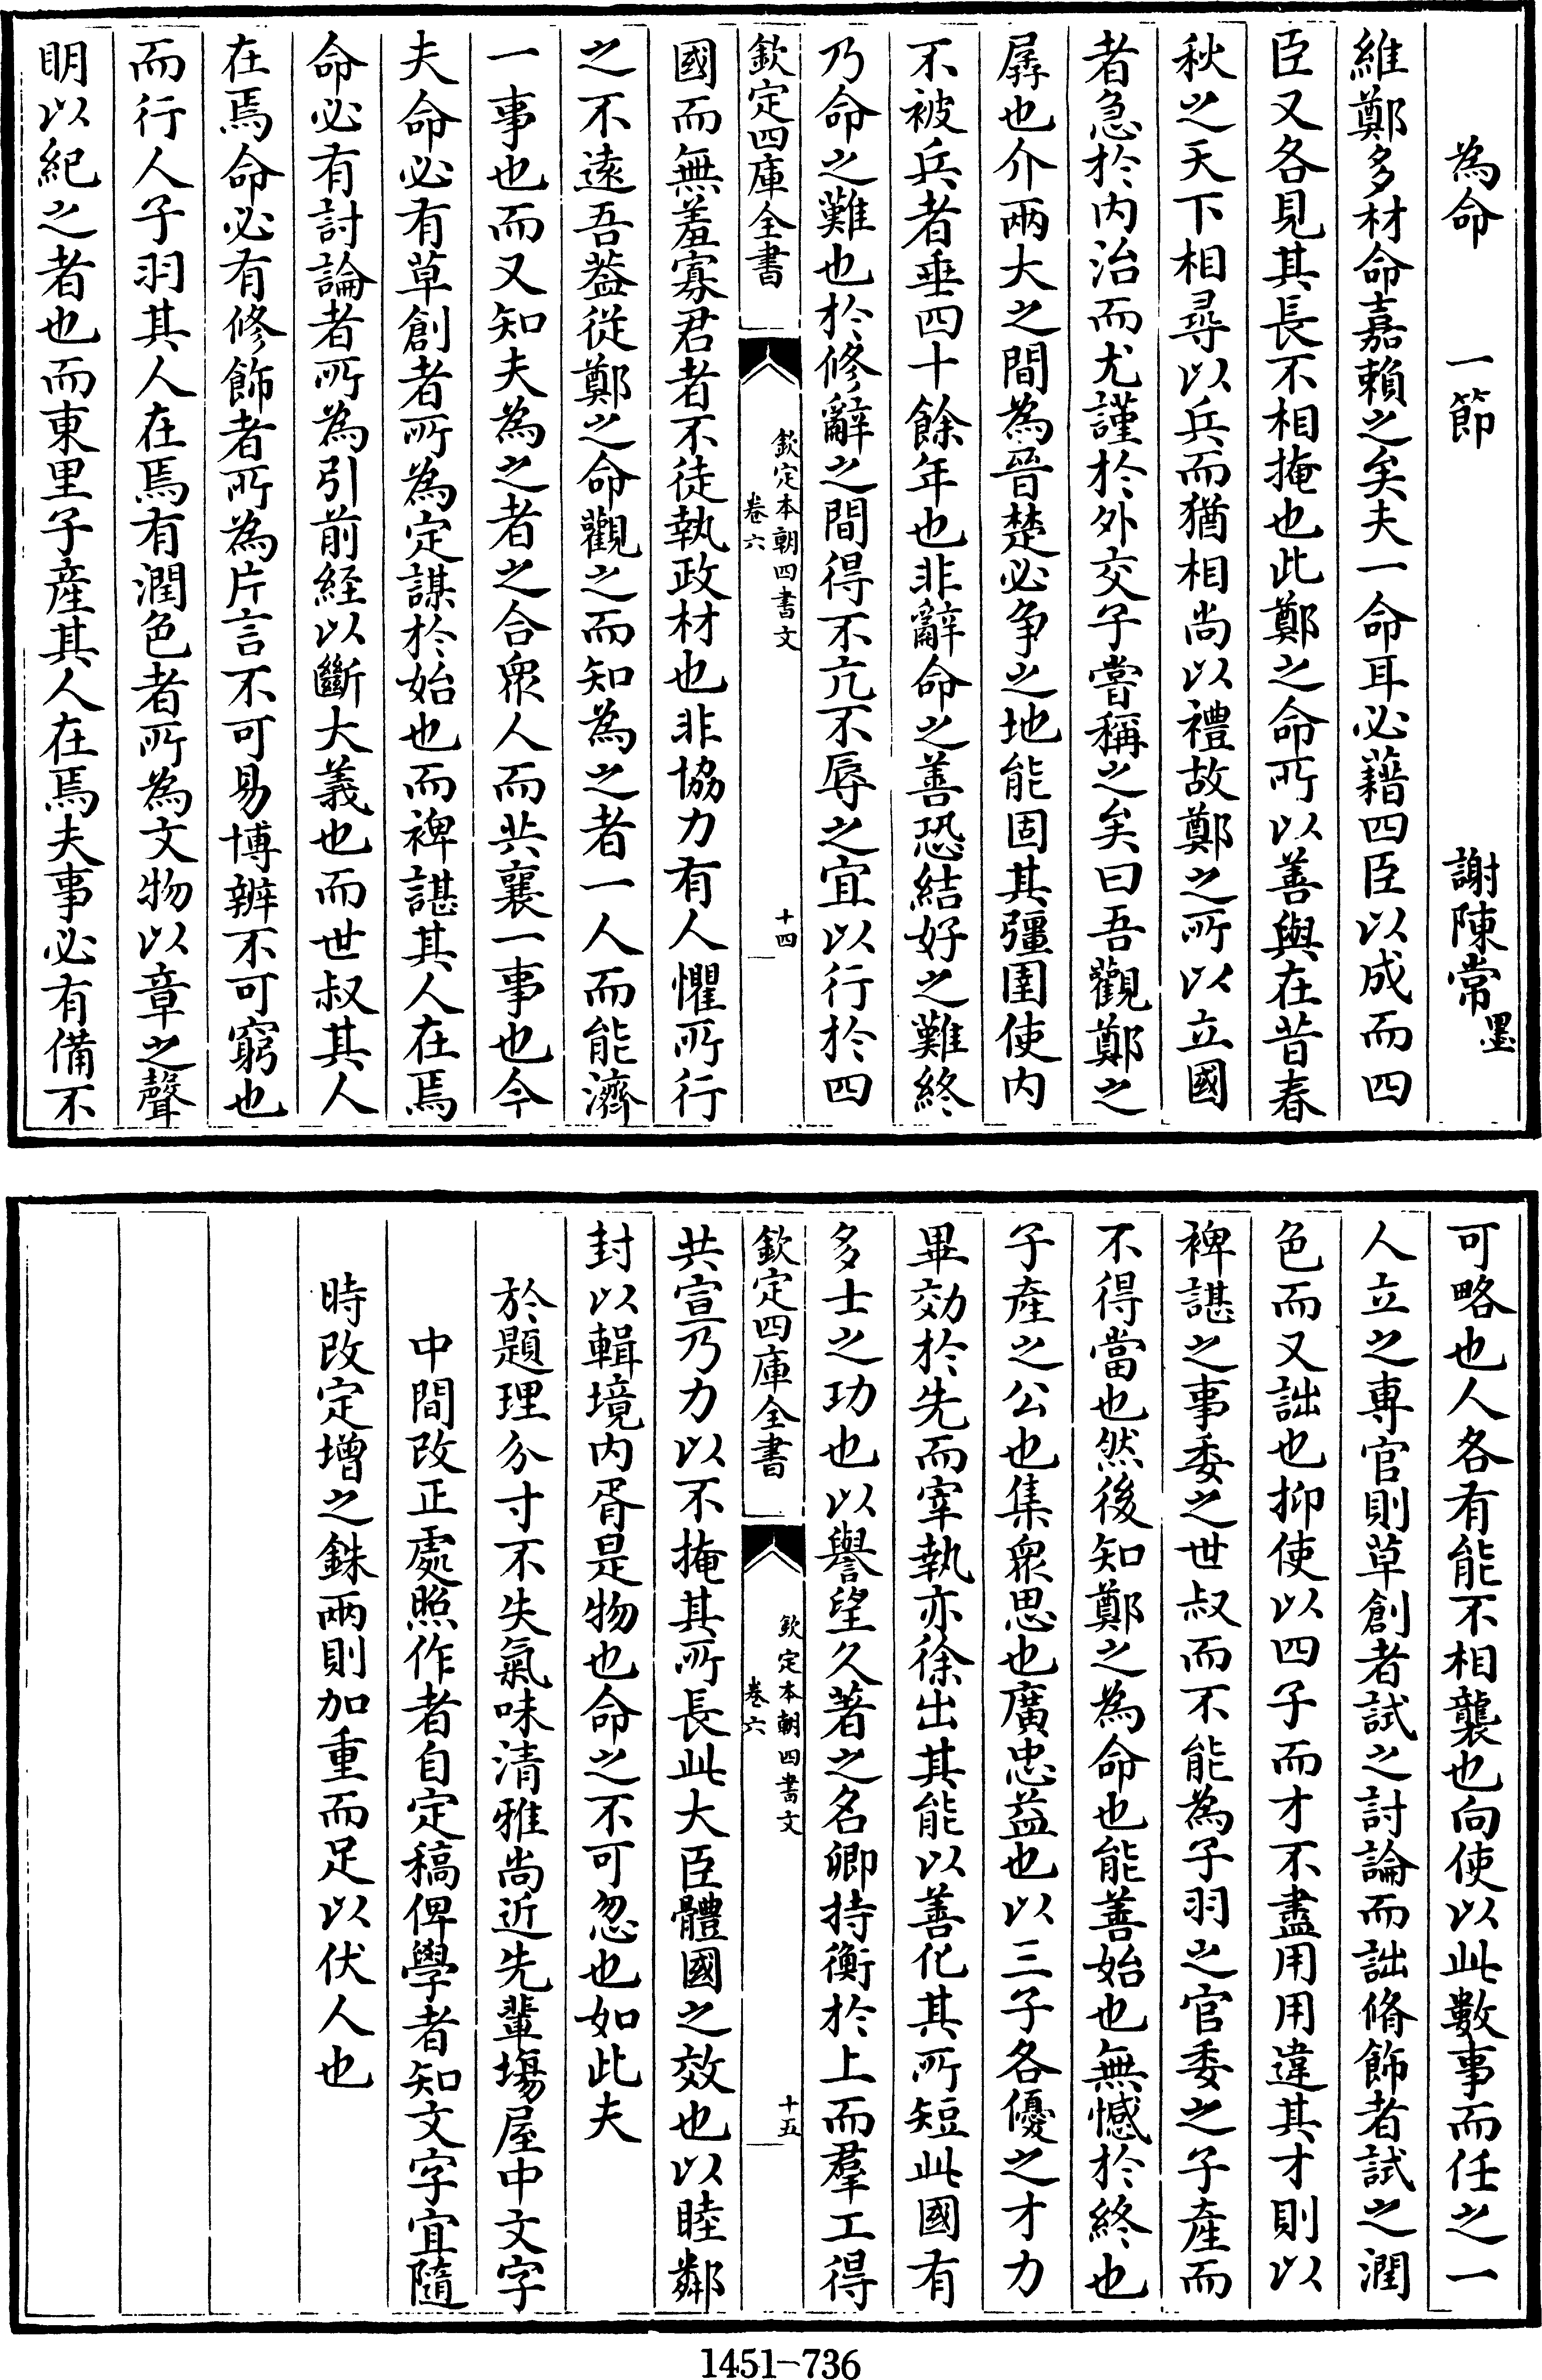 為命　一節　謝陳常墨
維鄭多材命嘉賴之矣夫一命耳必藉四臣以成而四
臣又各見其長不相掩也此鄭之命所以善與在昔春
秋之天下相尋以兵而猶相尚以禮故鄭之所以立國
者急於内治而尤謹於外交子嘗稱之矣曰吾觀鄭之
孱也介兩大之間為晉楚必争之地能固其彊圉使内
不被兵者垂四十餘年也非辭命之善恐結好之難終
乃命之難也於修辭之間得不亢不辱之宜以行於四
欽定四庫全書
欽定本朝四書文
卷六
十四
國而無羞寡君者不徒執政材也非協力有人懼所行
之不遠吾葢從鄭之命觀之而知為之者一人而能濟
一事也而又知夫為之者之合衆人而共襄一事也今
夫命必有草創者所為定謀於始也而裨諶其人在焉
命必有討論者所為引前経以斷大義也而世叔其人
在焉命必有修飾者所為片言不可易博辨不可窮也
而行人子羽其人在焉有潤色者所為文物以章之聲
明以紀之者也而東里子産其人在焉夫事必有備不
可略也人各有能不相襲也向使以此數事而任之一
人立之專官則草創者試之討論而詘脩飾者試之潤
色而又詘也抑使以四子而才不盡用用違其才則以
裨諶之事委之世叔而不能為子羽之官委之子產而
不得當也然後知鄭之為命也能善始也無憾於終也
子產之公也集衆思也廣忠益也以三子各優之才力
畢効於先而宰執亦徐出其能以善化其所短此國有
多士之功也以譽望久著之名卿持衡於上而羣工得
欽定四庫全書
欽定本朝四書文
卷六
十五
共宣乃力以不掩其所長此大臣體國之效也以睦鄰
封以輯境内胥是物也命之不可忽也如此夫
於題理分寸不失氣味清雅尚近先輩塲屋中文字
中間改正處照作者自定稿俾學者知文字宜隨
時改定增之銖兩則加重而足以伏人也
1451-736